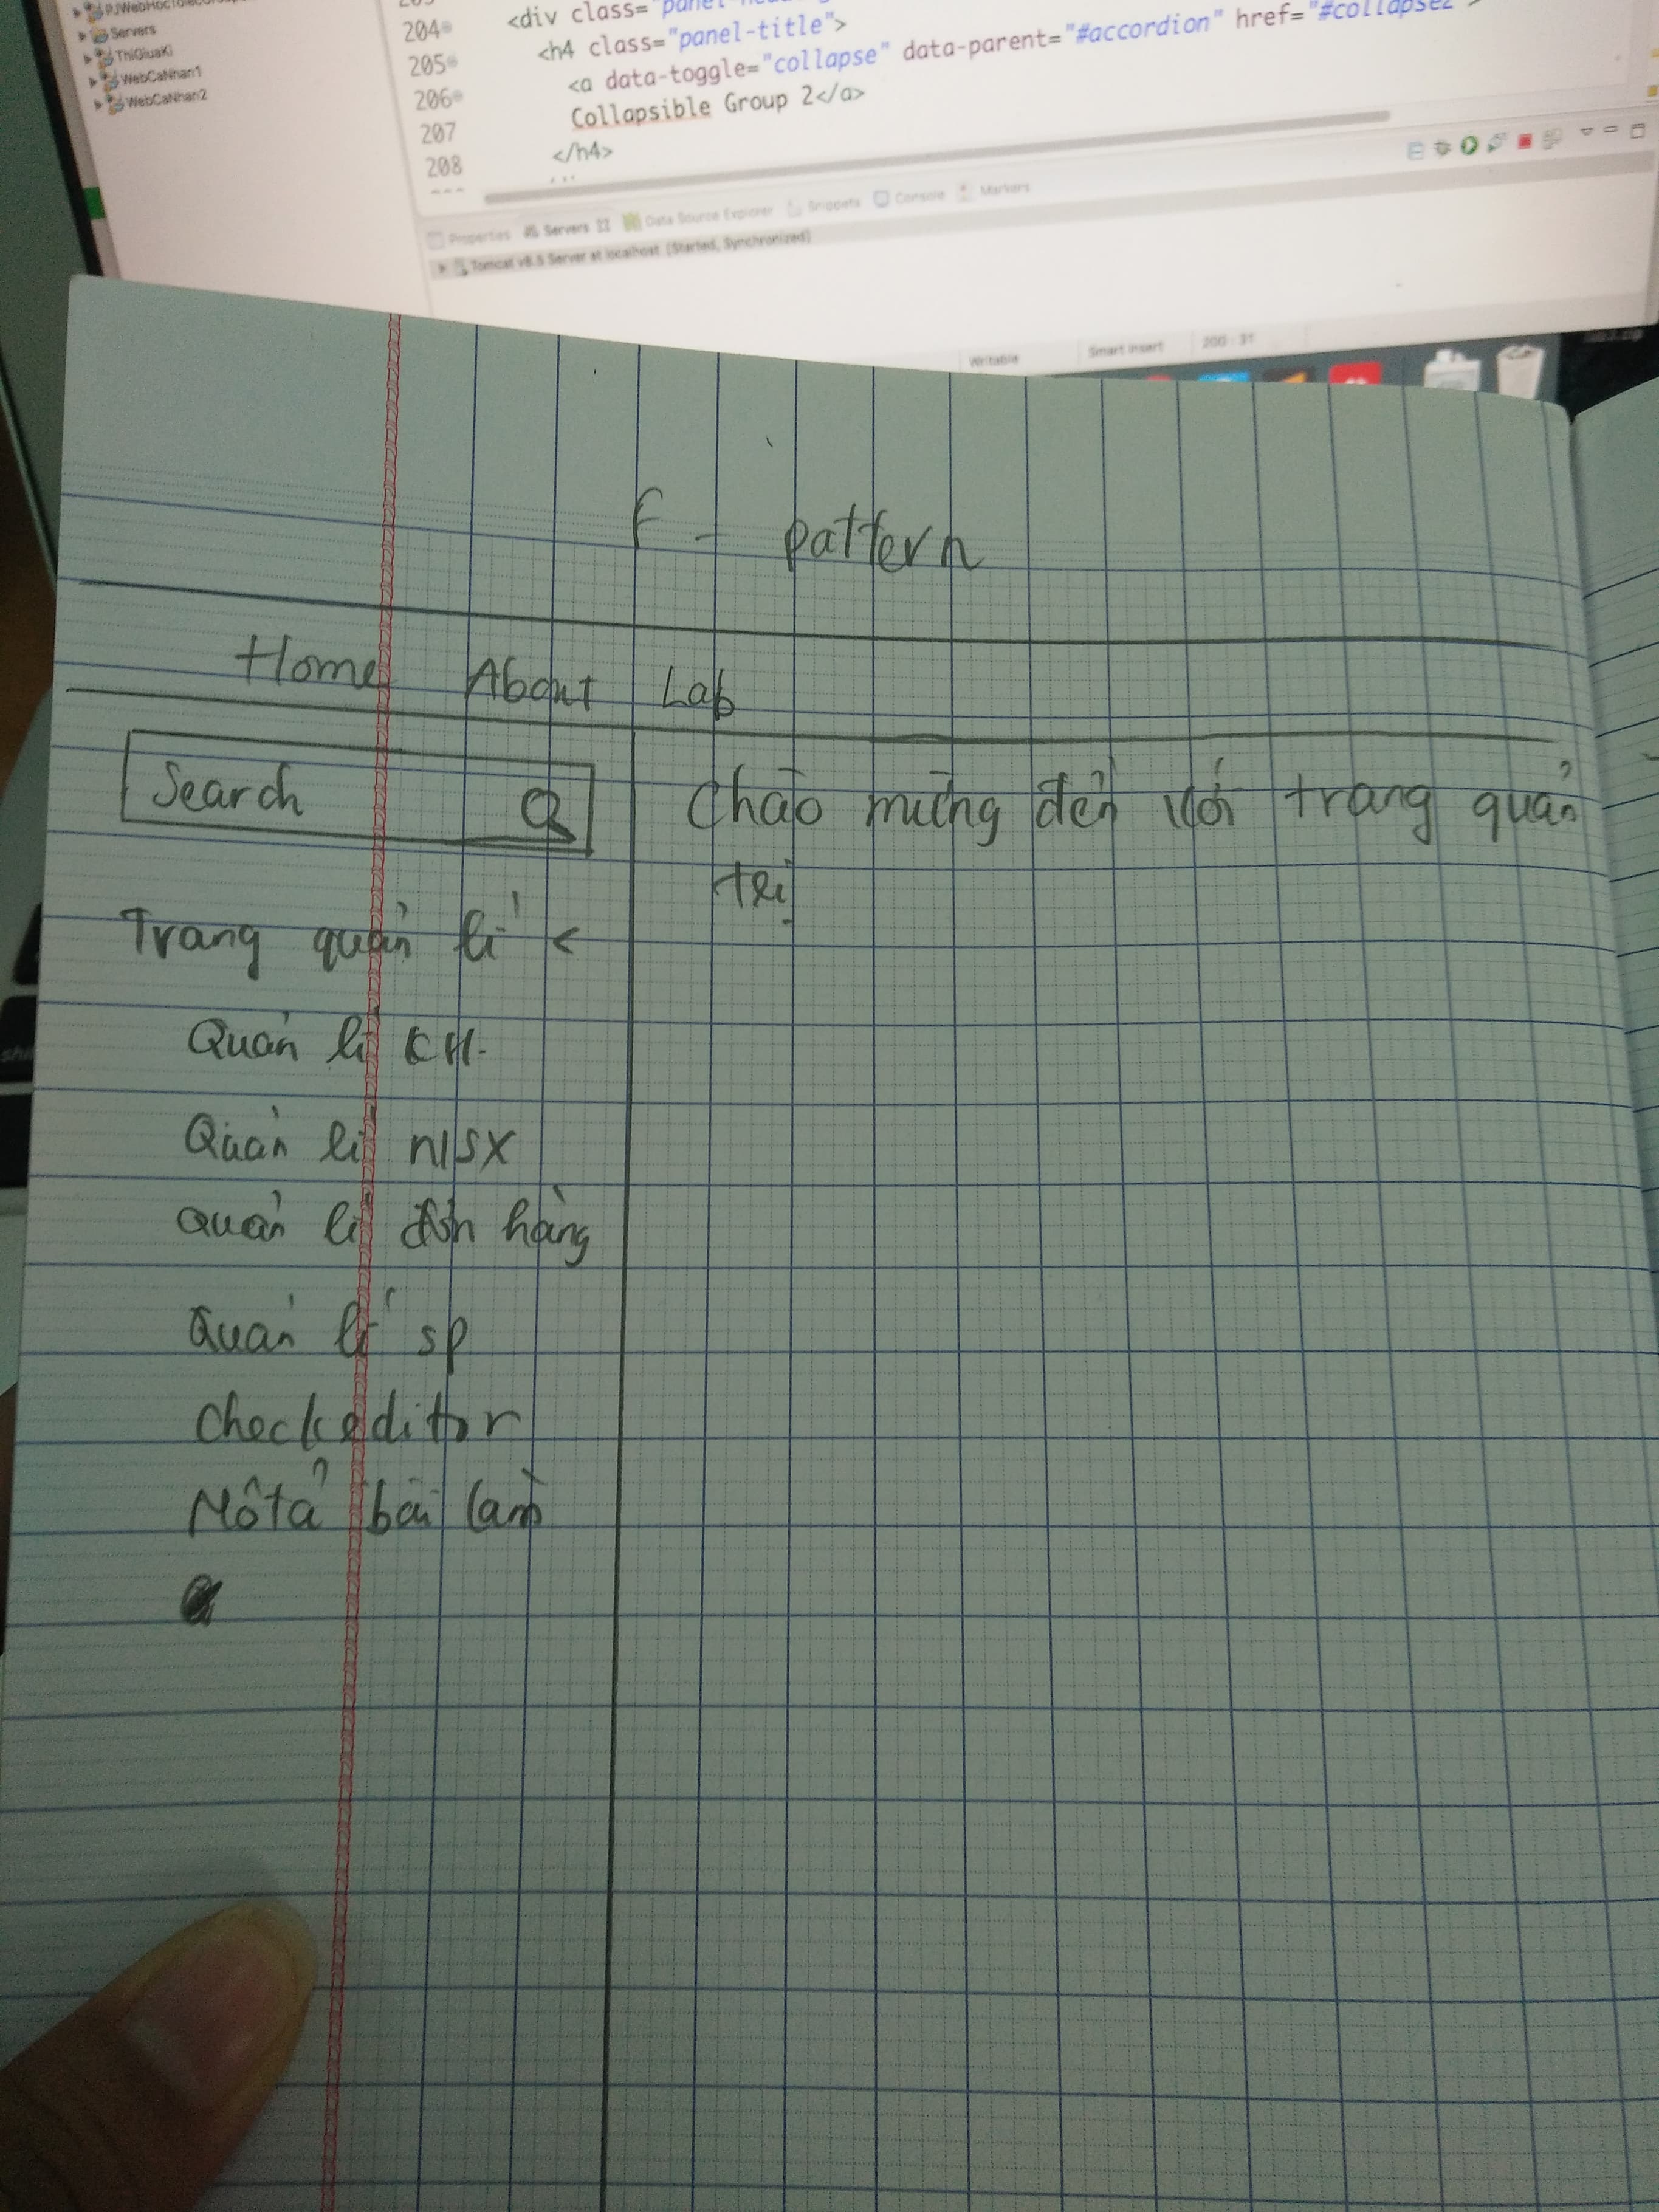 Servers
ThiGiuaKi
WebCaNhan1
WebCaNhan2
204
<div class="panel-
205
<h4 class="panel-title">
206
<a data-toggle="collapse" data-parent="#accordion" href="#collapse2">
207
Collapsible Group 2</a>
208
</h4>
Properties Servers Data Source Explorer Snippets Console Markers
Tomcat v8.5 Server at localhost [Started, Synchronized]
Writable Smart Insert 200 : 31
F - pattern
Home About Lab
Search
Chào mừng đến với trang quản
trị
Trang quản lí <
Quản lí KH.
Quản lí NSX
Quản lí đơn hàng
Quản lí sp
check editor
Mô tả bài làm